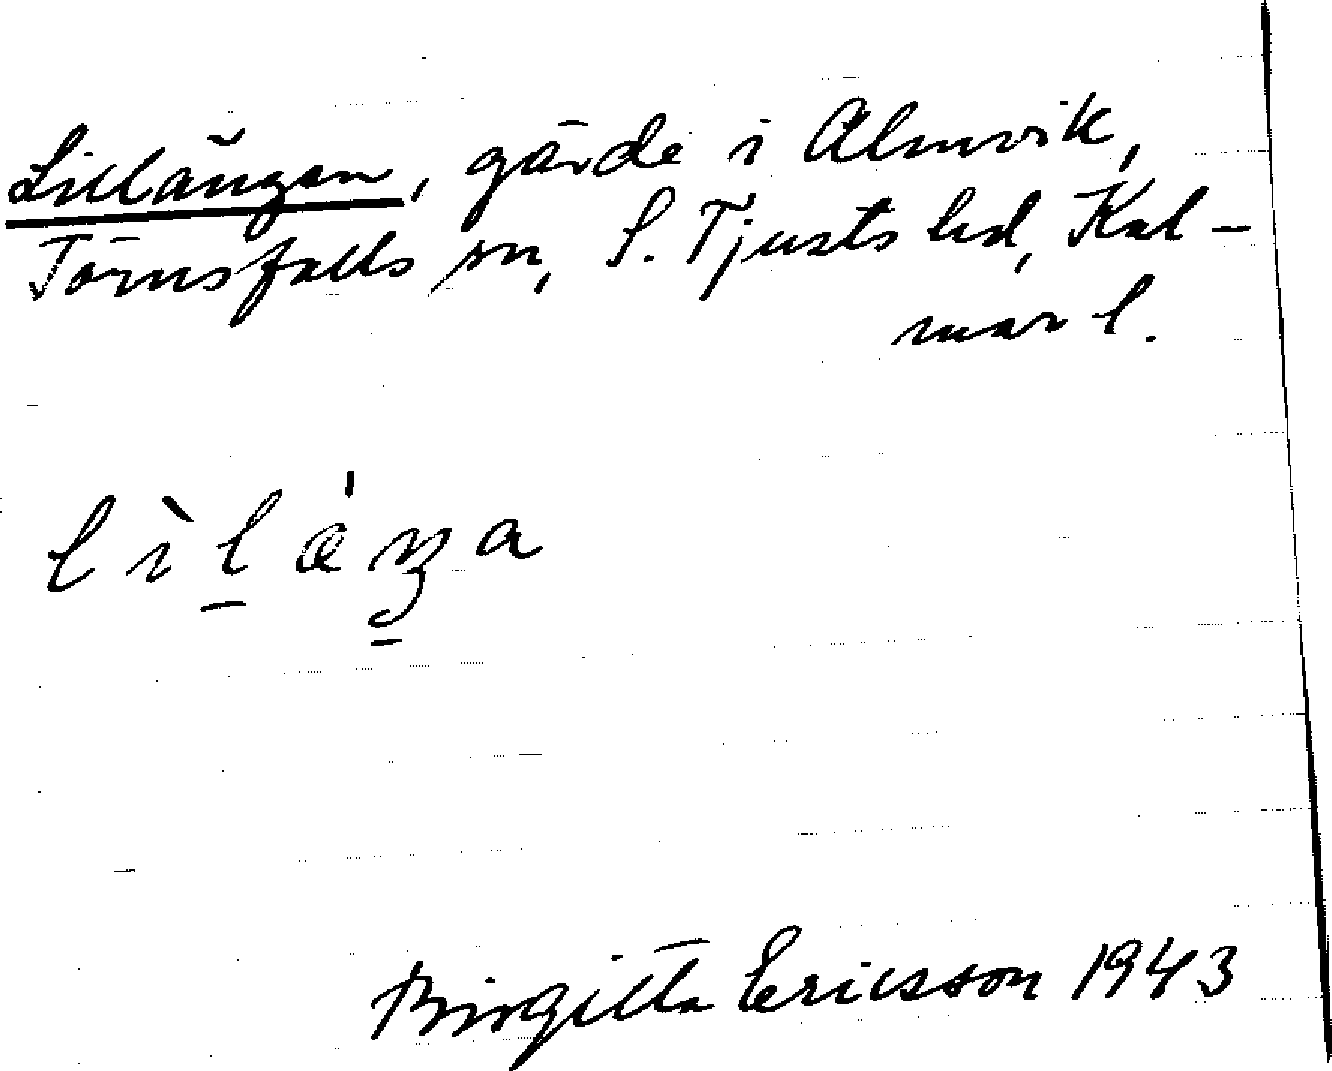 Lillängan, gärde i Almvik,
Törnsfalls sn, S. Tjusts hd, Kal-
mar l.
lìlæ̀ŋa
Birgitta Ericsson 1943